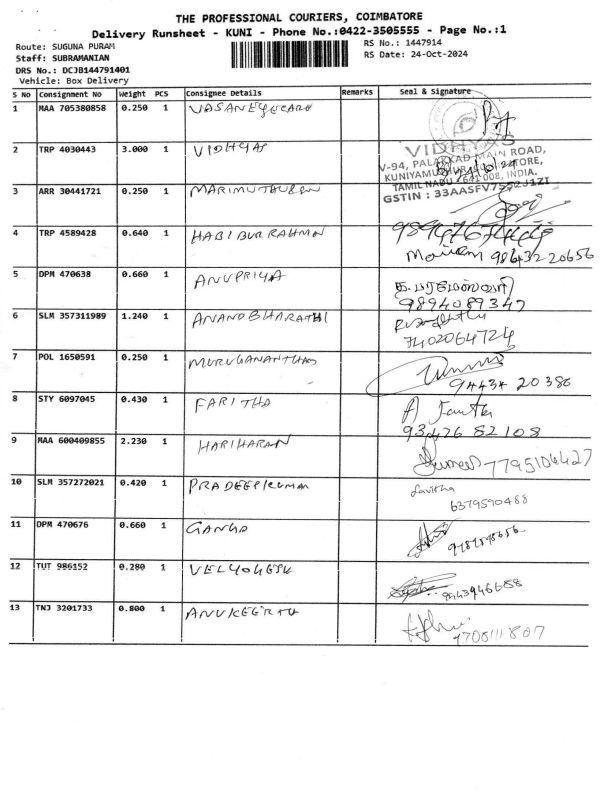 THE PROFESSIONAL COURIERS, COIMBATORE
Delivery Runsheet - KUNI - Phone No.:0422-3505555 - Page No.:1
Route: SUGUNA PURAM
RS No.: 1447914
Staff: SUBRAMANIAN
RS Date: 24-Oct-2024
DRS No.: DCJB144791401
Vehicle: Box Delivery
S No Consignment No Weight PCS Consignee Details Remarks Seal & Signature
1 MAA 705380858 0.250 1 VASANEYECARE
2 TRP 4030443 3.000 1 VIDHYAS
VIDHYA'S
V-94, PALAKKAD MAIN ROAD,
TAMIL NADU 641 008, INDIA.
3 ARR 30441721 0.250 1
GSTIN :
4 TRP 4589428 0.640 1 HABIBUR RAHMAN
98432 20656
5 DPM 470638 0.660 1 ANUPRIYA க.பரமேஸ்வரி
9894089347
6 SLM 357311989 1.240 1 ANANDBHARATHI
7402064724
7 POL 1650591 0.250 1 MURUGANANTHAS
9443* 20386
8 STY 6097045 0.430 1 FARITHA
93426 82108
9 MAA 600409855 2.230 1 HARIHARAN
7795106427
10 SLM 357272021 0.420 1 PRADEEPKUMAR Savitha
6379590488
11 DPM 470676 0.660 1 GANGA
12 TUT 986152 0.280 1
9443946688
13 TNJ 3201733 0.800 1 ANUKEERTH